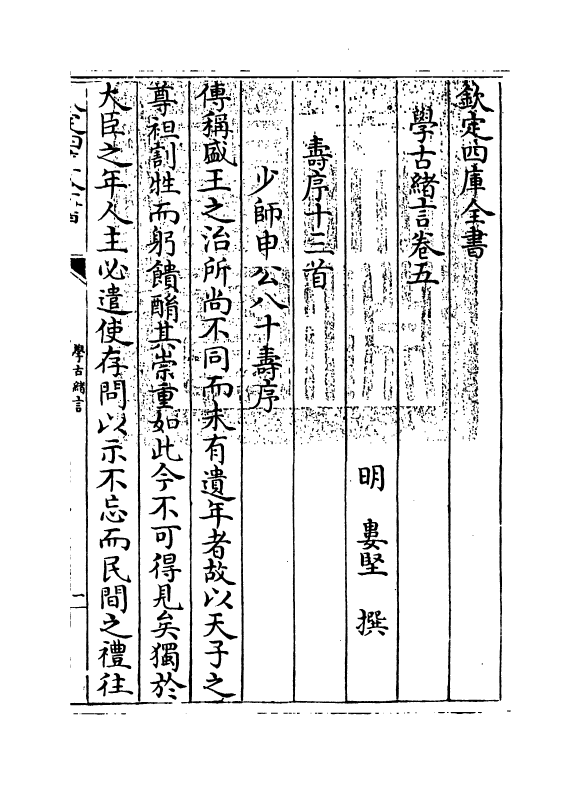 欽定四庫全書
學古緒言卷五
明 婁堅 撰
壽序十三首
少師申公八十壽序
傳稱盛王之治所尚不同而未有遺年者故以天子之
尊袒割牲而躬饋酳其崇重如此今不可得見矣獨於
大臣之年人主必遣使存問以示不忘而民間之禮往
學古緒言